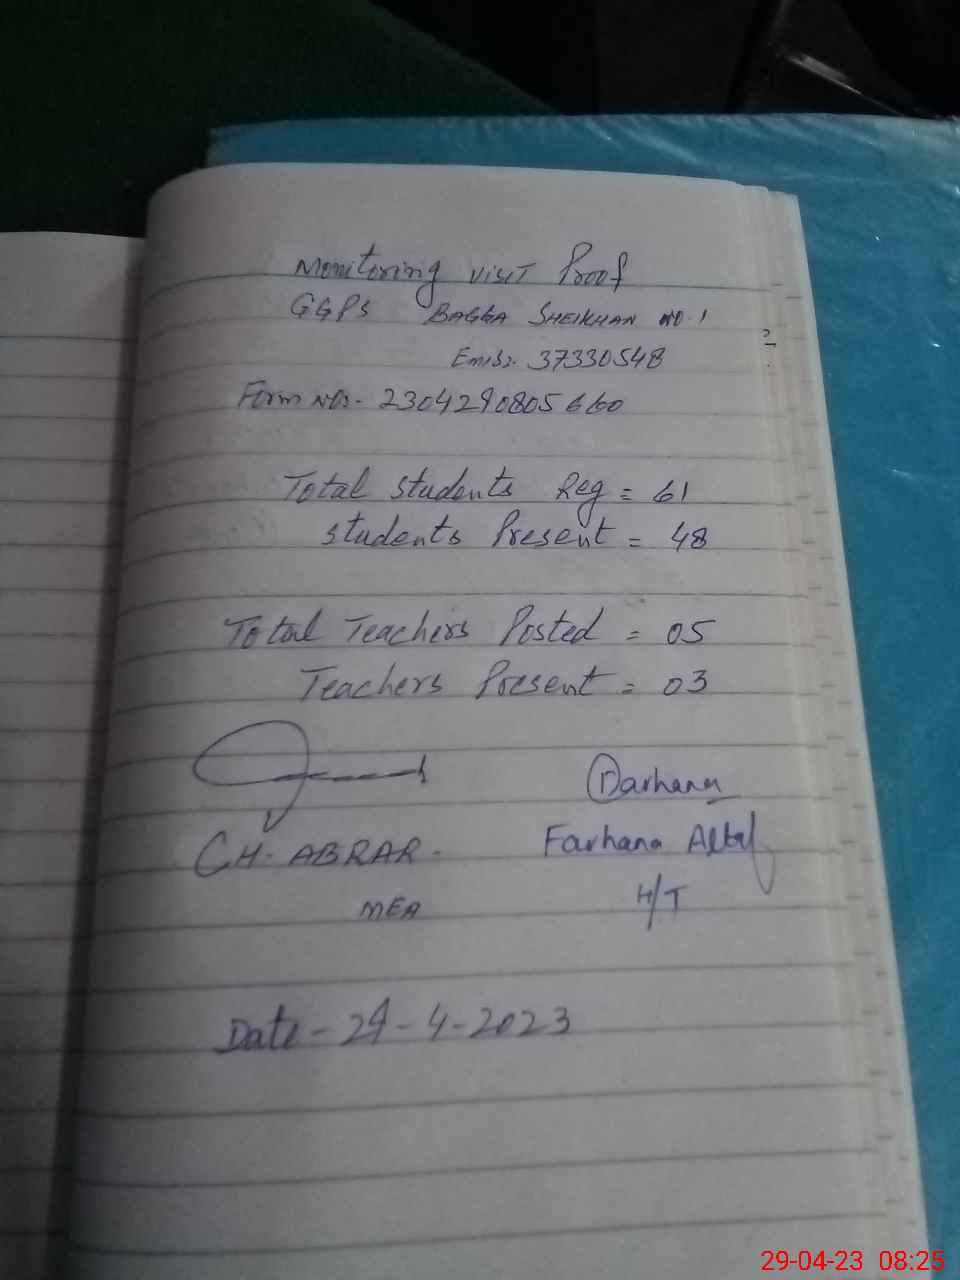 Monitoring visit Proof
GGPS BAGGA SHEIKHAN NO.1
Emis:- 37330548
Form No:- 2304290805660
Total students Reg = 61
students Present = 48
Total Teachers Posted = 05
Teachers Present = 03
Farhana
CH. ABRAR. Farhana Altaf
MEA H/T
Date - 29-4-2023
29-04-23 08:25